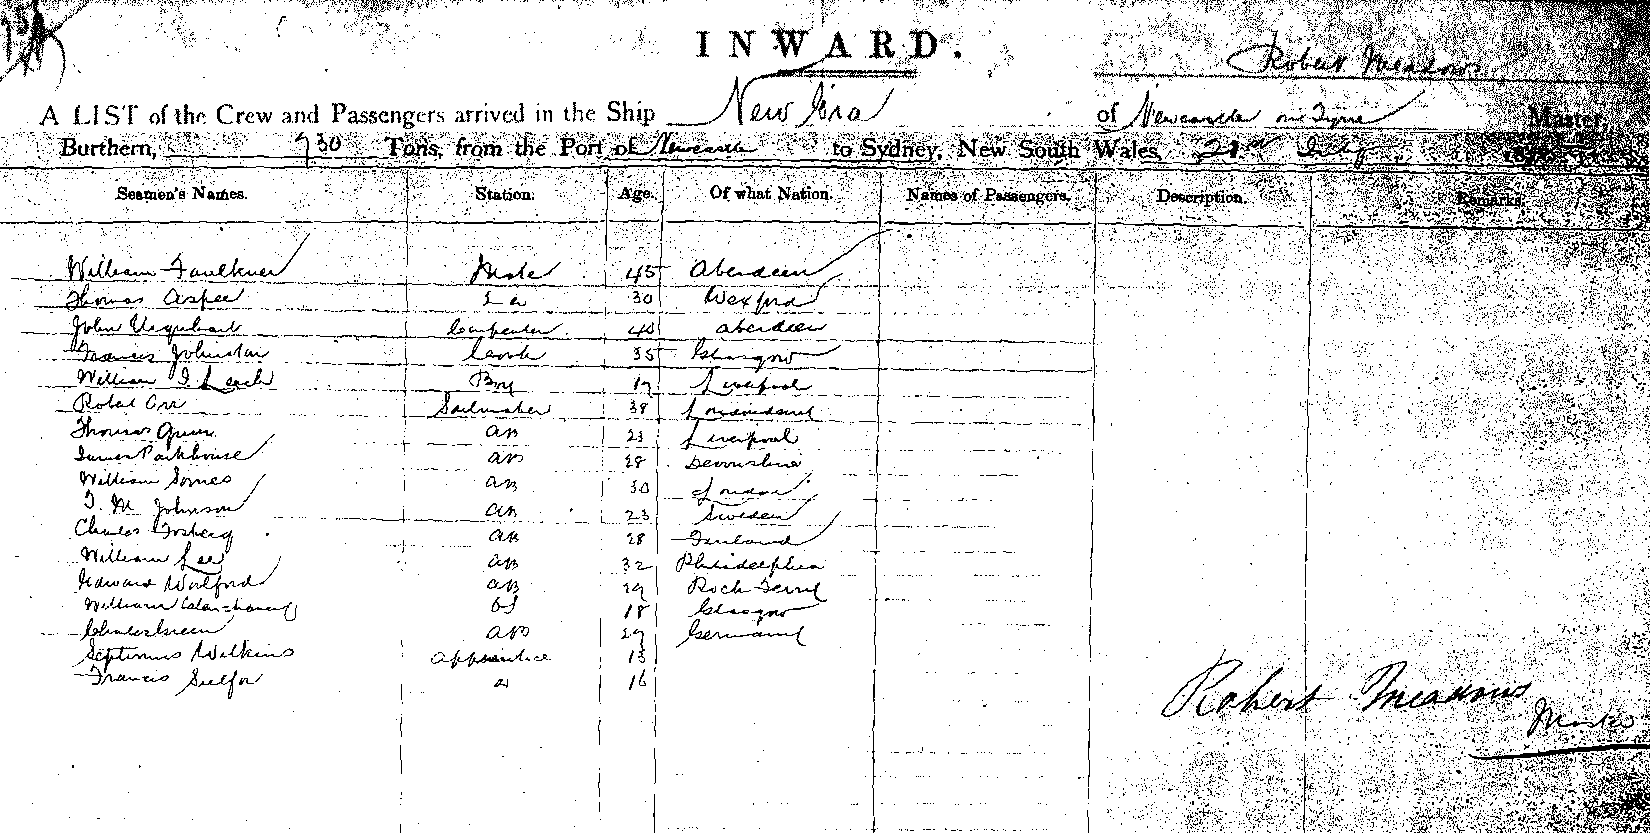 INWARD.
Robert Meadows
A LIST of the Crew and Passengers arrived in the Ship New Era of Newcastle on Tyne Master,
Burthern, 930 Tons, from the Port of Newcastle to Sydney, New South Wales, 21st July
Seamen's Names. Station. Age. Of what Nation. Names of Passengers. Description. Remarks.
William Faulkner Mate 45 Aberdeen
Thomas Aspee 30 Wexford
John Urquhart Carpenter 40 Aberdeen
Francis Johnston Cook 35 Glasgow
William I Leach Boy 17 Liverpool
Robert Orr Sailmaker 38
Thomas Green AB 23 Liverpool
James Parkhouse AB 28 Devonshire
William Somes AB 30 London
T. M Johnson AB 23 Sweden
Charles Forsberg AB 28 Finland
William Lee AB 32 Philadelphia
Edward Walford AB 29 Rock Ferry
William OS 18 Glasgow
Charles Green AB 29 Germany
Septimus Wilkins Apprentice 15
Francis 16
Robert Meadows
Master